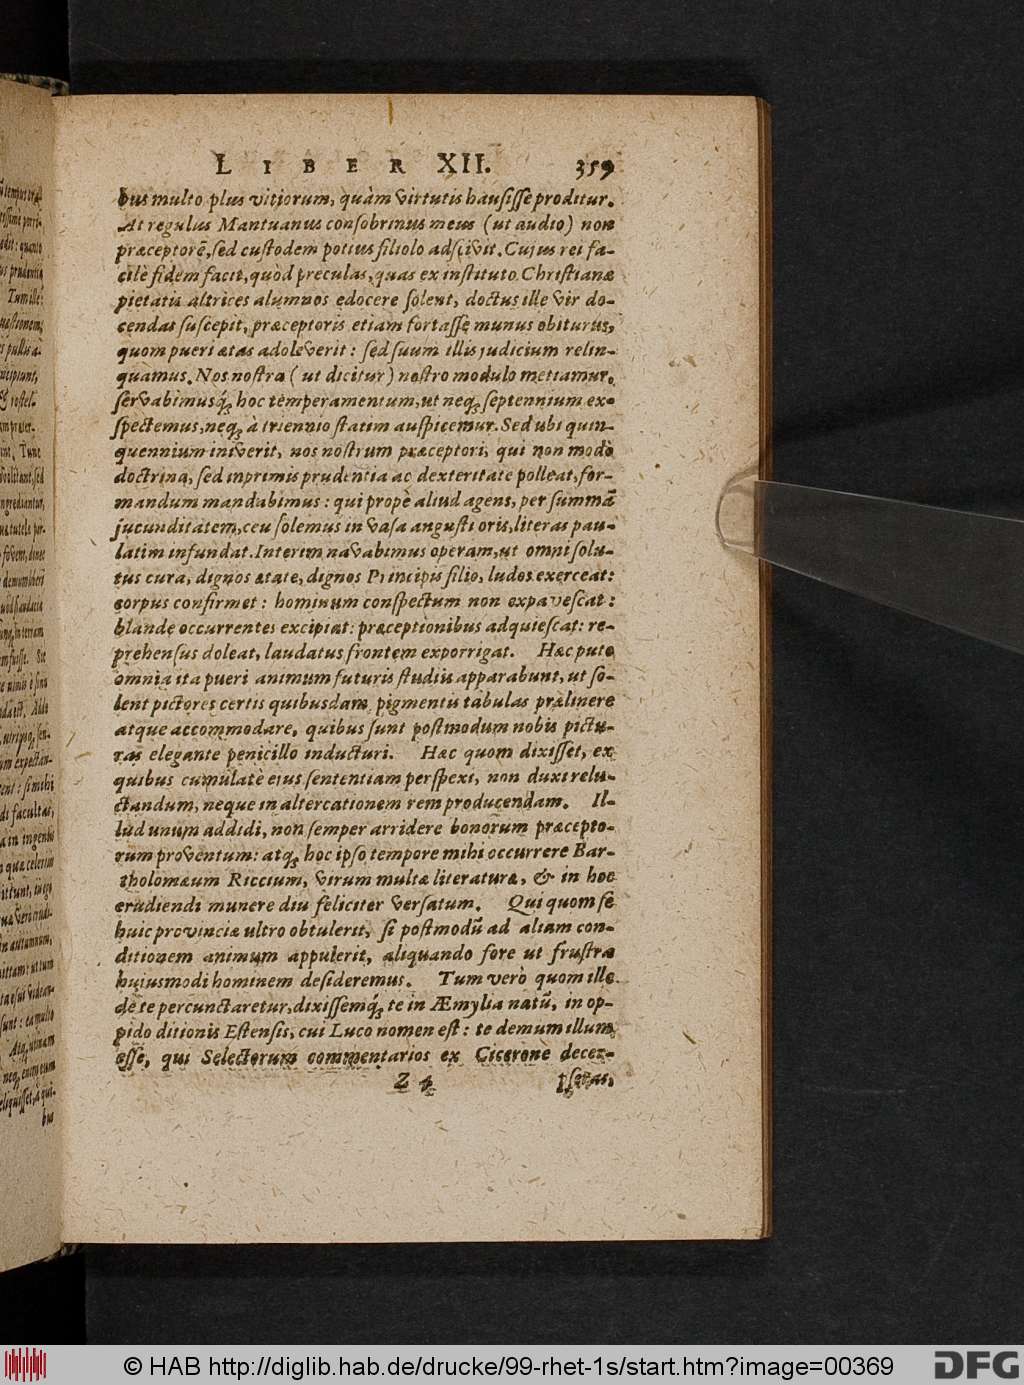 LIBER XII. 359
bus multo plus vitiorum, quàm virtutis hausisse proditur.
At regulus Mantuanus consobrinus meus (ut audio) non
præceptorē, sed custodem potius filiolo adscivit. Cujus rei fa-
cilè fidem facit, quòd preculas, quas ex instituto Christianæ
pietatis altrices alumnos edocere solent, doctus ille vir do-
cendas suscepit, præceptoris etiam fortasse munus obiturus,
quom pueri ætas adoleverit: sed suum illis judicium relin-
quamus. Nos nostra (ut dicitur) nostro modulo metiamur.
servabimusq́; hoc temperamentum, ut neq; septennium ex-
spectemus, neq; à triennio statim auspicemur. Sed ubi quin-
quennium iniverit, nos nostrum præceptori, qui non modò
doctrina, sed inprimis prudentia ac dexteritate polleat, for-
mandum mandabimus: qui propè aliud agens, per summā
jucunditatem, ceu solemus in vasa angusti oris, literas pau-
latim infundat. Interim navabimus operam, ut omni solu-
tus cura, dignos ætate, dignos Principis filio, ludos exerceat:
corpus confirmet: hominum conspectum non expavescat:
blandè occurrentes excipiat: præceptionibus adquiescat: re-
prehensus doleat, laudatus frontem exporrigat. Hæc puto
omnia ita pueri animum futuris studiis apparabunt, ut so-
lent pictores certis quibusdam pigmentis tabulas prælinere
atque accommodare, quibus sunt postmodum nobis pictu-
ras elegante penicillo inducturi. Hæc quom dixisset, ex
quibus cumulatè ejus sententiam perspexi, non duxi relu-
ctandum, neque in altercationem rem producendam. Il-
lud unum addidi, non semper arridere bonorum præcepto-
rum proventum: atq; hoc ipso tempore mihi occurrere Bar-
tholomæum Riccium, virum multæ literaturæ, & in hoc
erudiendi munere diu feliciter versatum. Qui quom se
huic provinciæ ultro obtulerit, si postmodū ad aliam con-
ditionem animum appulerit, aliquando fore ut frustra
hujusmodi hominem desideremus. Tum verò quom ille
de te percunctaretur, dixissemq́; te in Æmylia natū, in op-
pido ditionis Estensis, cui Luco nomen est: te demum illum
esse, qui Selectorum commentarios ex Cicerone decer-
Z 4 psetas,
© HAB http://diglib.hab.de/drucke/99-rhet-1s/start.htm?image=00369
DFG